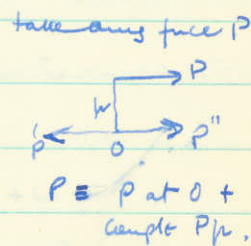 take any force P
P
p
P' O P''
P ≡ P at O +
couple Pp.